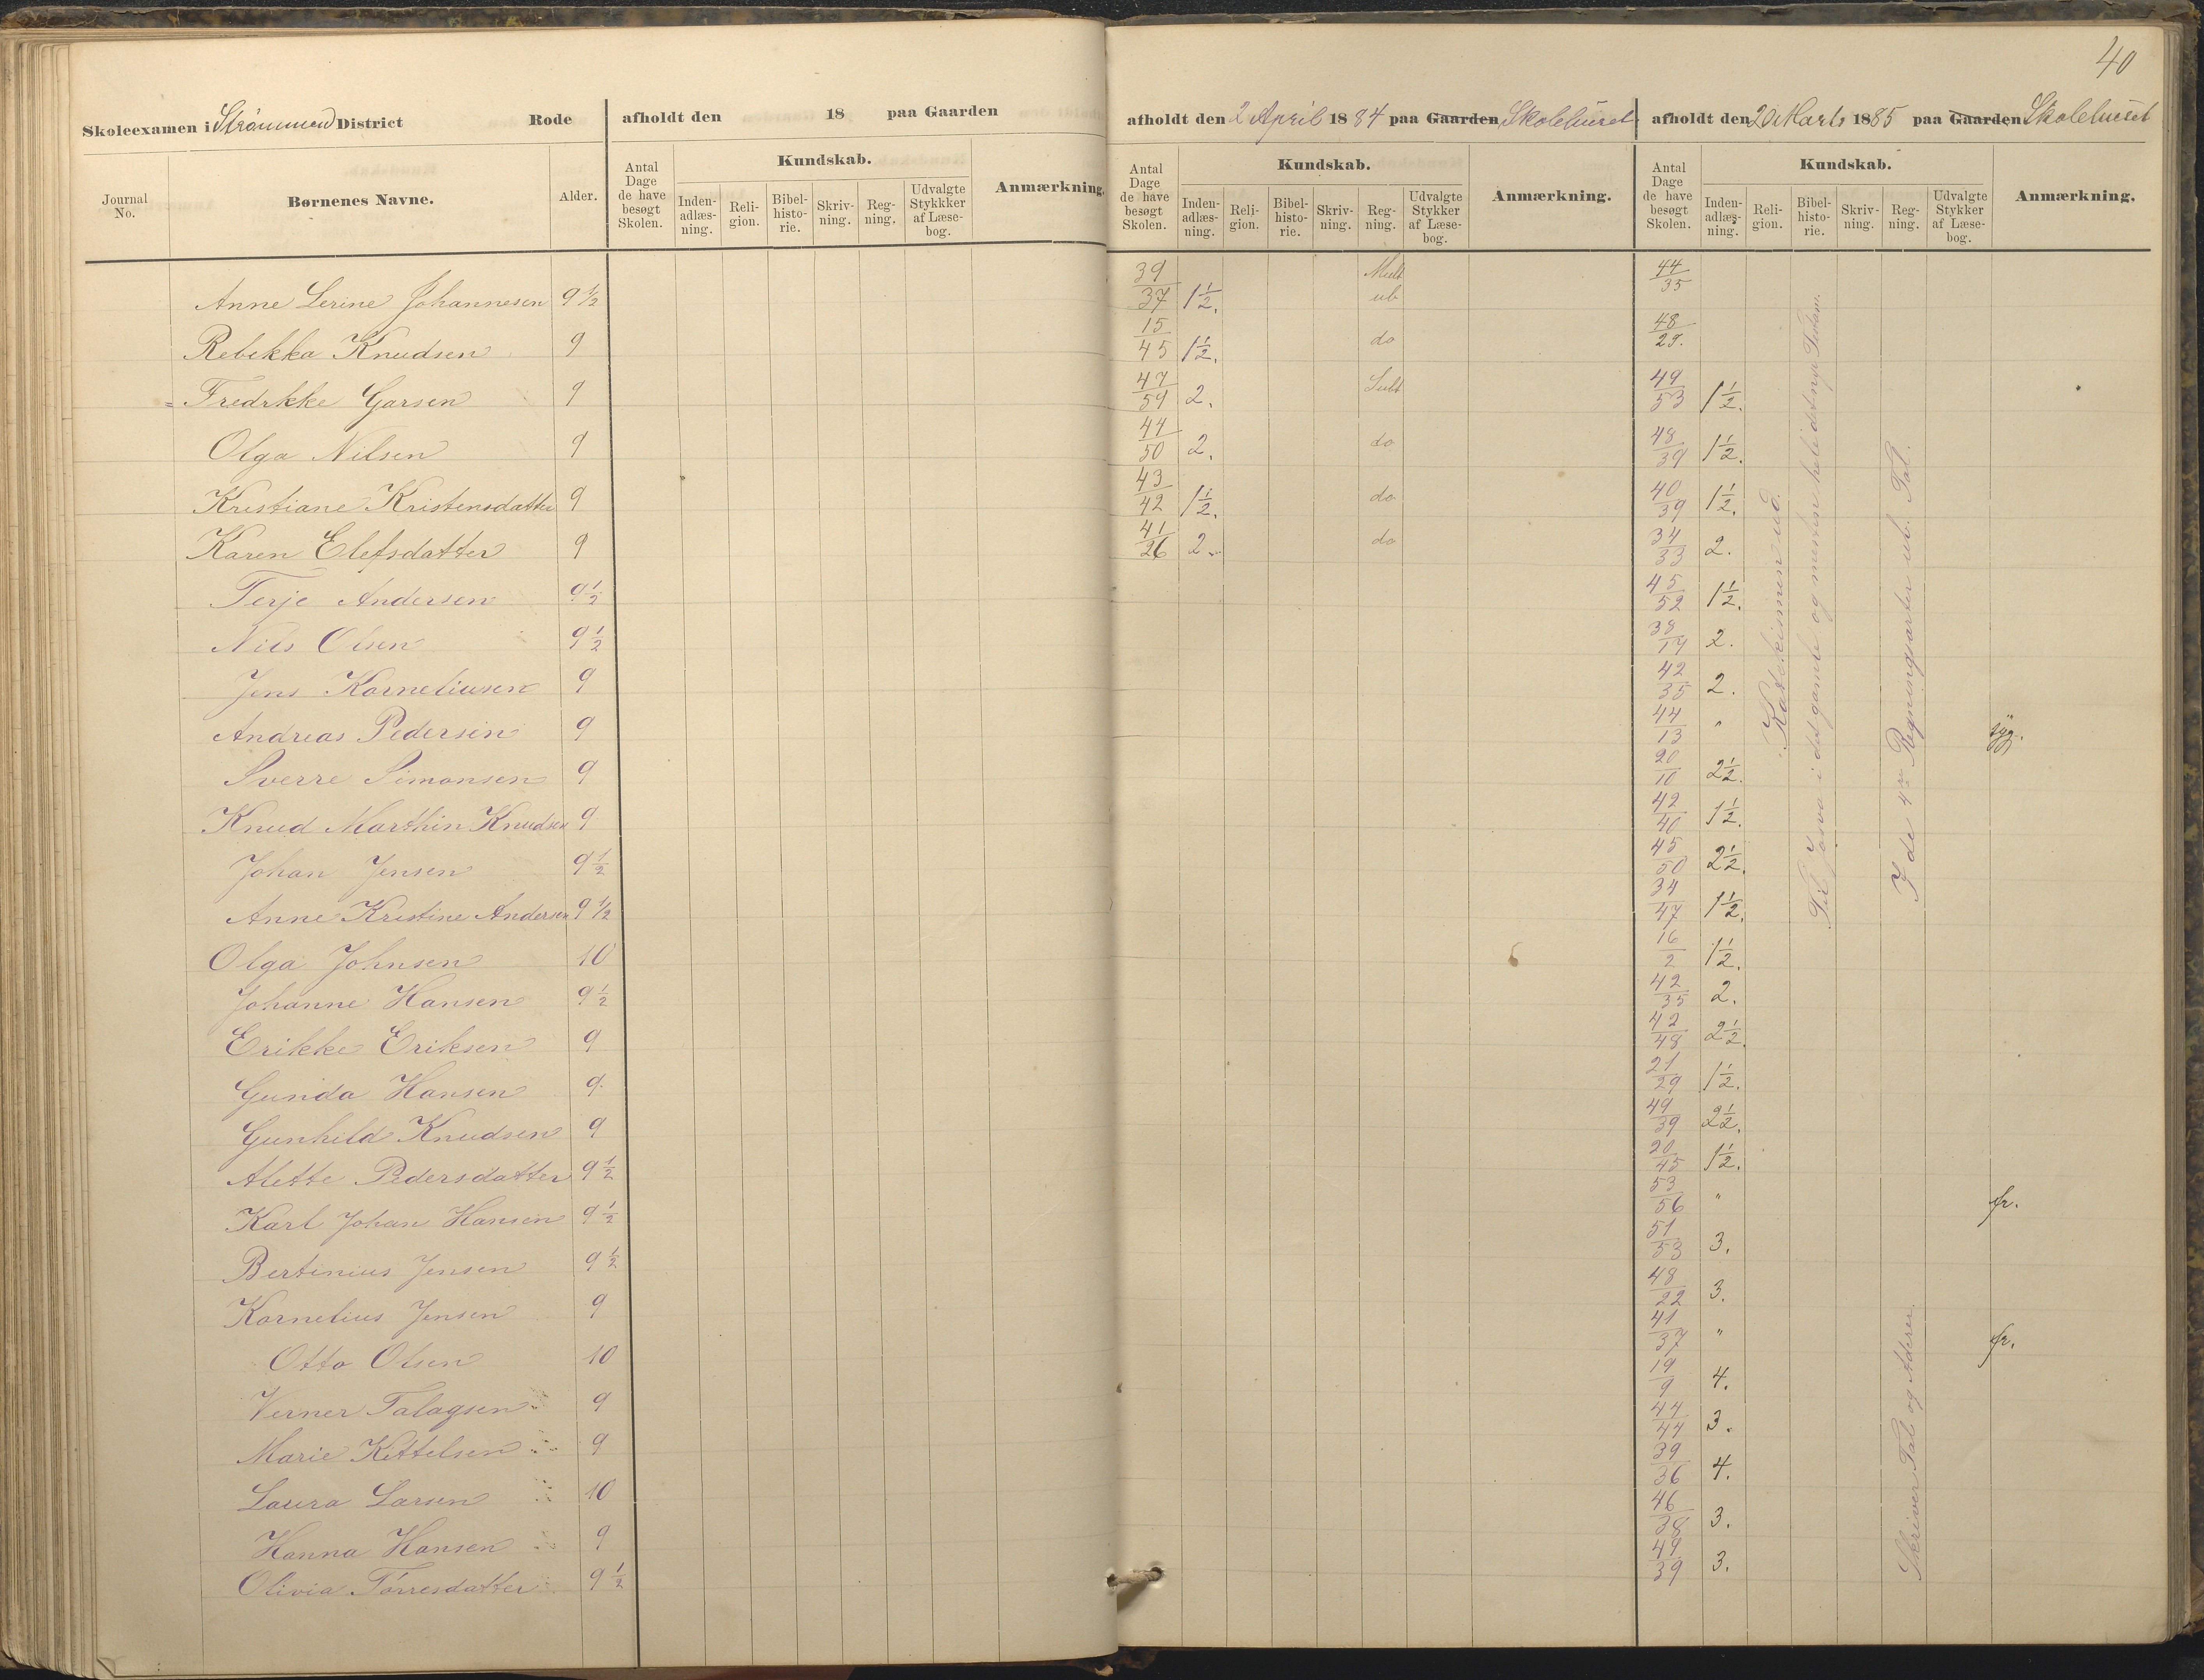 40
Skoleexamen i Strømmen District Rode
afholdt den 18 paa Gaarden
afholdt den 2 April 1884 paa Gaarden Skolehuset
afholdt den 20 Marts 1885 paa Gaarden Skolehuset
Journal No. Børnenes Navne. Alder.
Antal Dage de have besøgt Skolen. Kundskab. Inden-adlæs-ning. Reli-gion. Bibel-histo-rie. Skriv-ning. Reg-ning. Udvalgte Stykkker af Læse-bog. Anmærkning.
Antal Dage de have besøgt Skolen. Kundskab. Inden-adlæs-ning. Reli-gion. Bibel-histo-rie. Skriv-ning. Reg-ning. Udvalgte Stykker af Læse-bog. Anmærkning.
Antal Dage de have besøgt Skolen. Kundskab. Inden-adlæs-ning. Reli-gion. Bibel-histo-rie. Skriv-ning. Reg-ning. Udvalgte Stykker af Læse-bog. Anmærkning.
Anne Serine Johannesen 9 1/2 39/37 1 1/2. Mult ub 44/35
Rebekka Knudsen 9 15/45 1 1/2. do 48/29.
Fredrkke Garsen 9 47/59 2. Subt 49/53 1 1/2.
Olga Nilsen 9 44/50 2. do 48/39 1 1/2.
Kristiane Kristensdatter 9 43/42 1 1/2. do 40/39 1 1/2.
Karen Elefsdatter 9 41/26 2. do 34/33 2.
Terje Andersen 9 1/2 45/52 1 1/2.
Nils Olsen 9 1/2 38/17 2.
Jens Korneliusen 9 42/35 2.
Andreas Pedersen 9 44/13 " syg.
Sverre Simonsen 9 20/10 2 1/2.
Knud Marthin Knudsen 9 42/40 1 1/2.
Johan Jensen 9 1/2 45/50 2 1/2.
Anne Kristine Andersen 9 1/2 34/47 1 1/2.
Olga Johnsen 10 16/2 1 1/2.
Johanne Hansen 9 1/2 42/35 2.
Erikke Eriksen 9 42/48 2 1/2.
Gunda Hansen 9. 21/29 1 1/2.
Gunhild Knudsen 9 49/39 2 1/2.
Alette Pedersdatter 9 1/2 20/45 1 1/2.
Karl Johan Hansen 9 1/2 53/56 " fr.
Bertinius Jensen 9 1/2 51/53 3.
Kornelius Jensen 9 48/22 3.
Otto Olsen 10 41/37 " fr.
Verner Talagsen 9 19/9 4.
Marie Kettelsen 9 44/44 3.
Laura Larsen 10 39/36 4.
Hanna Hansen 9 46/38 3.
Olivia Torresdatter 9 1/2 49/39 3.
Katekismen ud.
Til Josva i det gamle og næsten hele det nye Testam.
I de 4re Regningsarter ub. Tal.
Skriver Tal og Aderer